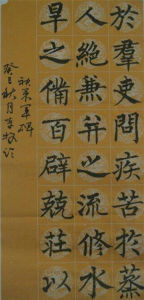 於羣吏問疾苦於蒸
人絕兼并之流修水
旱之備百辟兢莊以
神策軍碑
癸巳秋月李